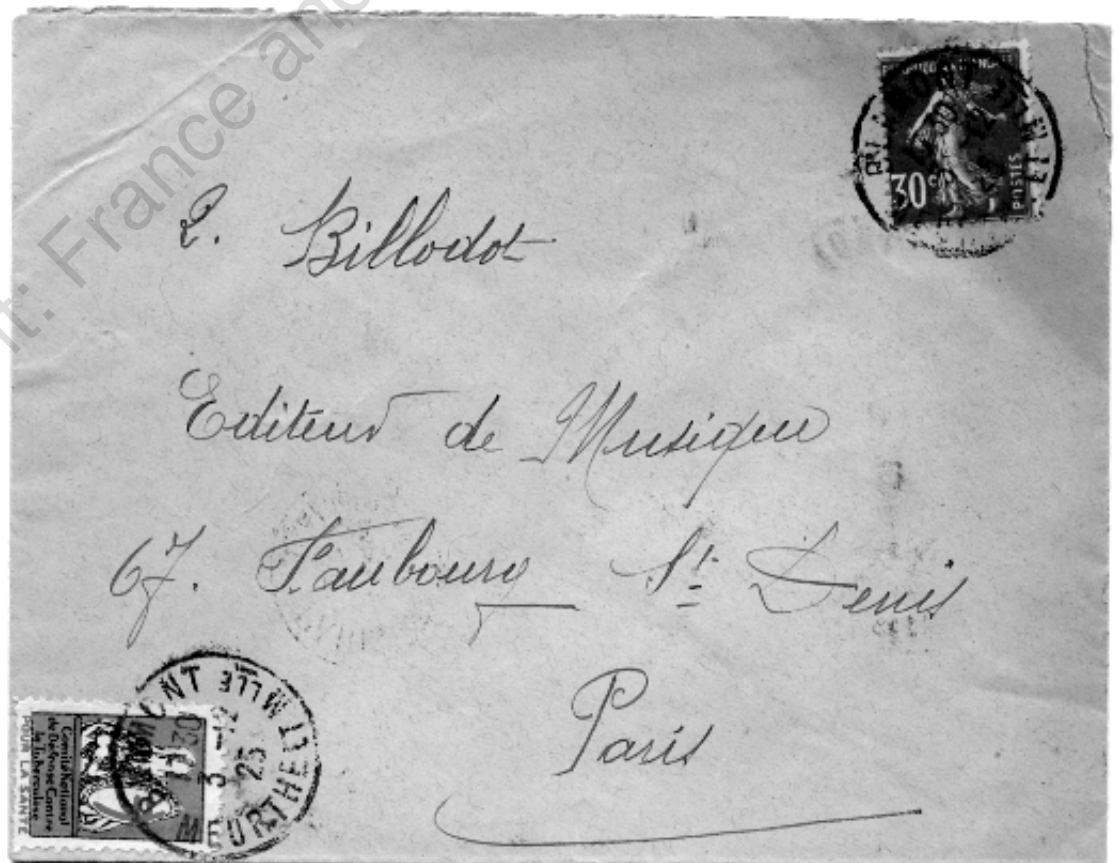 t: France and
30c
POSTES
L. Billodot
Editeur de Musique
67. Faubourg St Denis
Paris
Comité National
de Défense Contre
la Tuberculose
POUR LA SANTÉ
MEURTHE ET MLLE
3
25